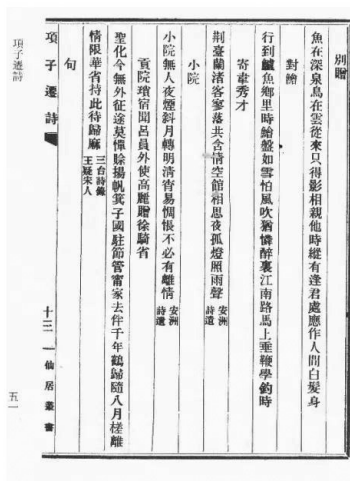 別贈
魚在深泉鳥在雲從來只得影相親他時縱有逢君處應作人間白髮身
對鱠
行到鱸魚鄉里時鱠盤如雪怕風吹猶憐醉裏江南路馬上垂鞭學釣時
寄韋秀才
荆臺蘭渚客寥落共含情空館相思夜孤燈照雨聲 安洲詩遺
小院
小院無人夜煙斜月轉明清宵易惆悵不必有離情 安洲詩遺
貢院瑣宿聞呂員外使高麗贈徐騎省
聖化今無外征途莫憚賒揚帆箕子國駐節管甯家去伴千年鶴歸隨八月槎離
情限華省持此待歸麻 三台詩錄王疑宋人
句
項子遷詩
十三
仙居叢書
項子遷詩
五一